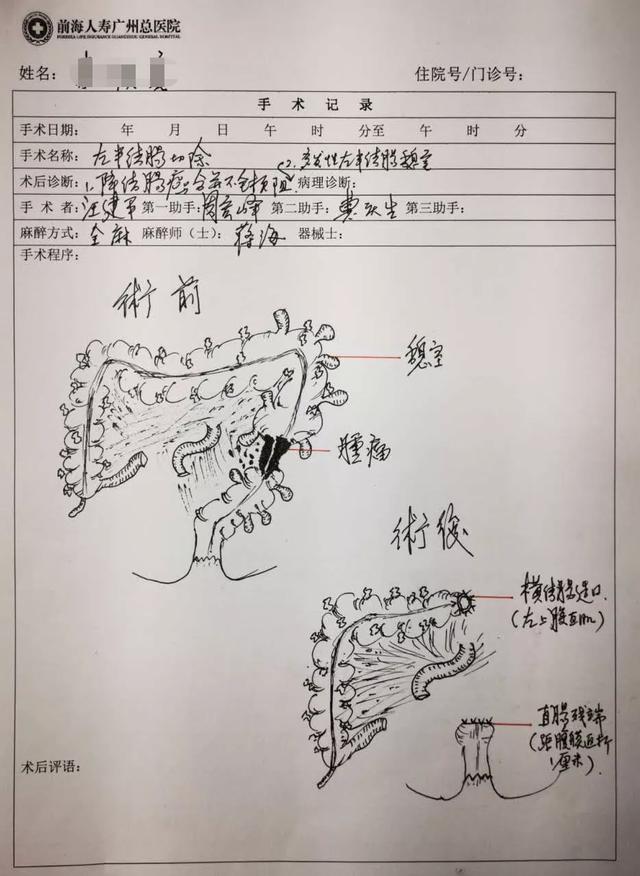 前海人寿广州总医院
FORESEA LIFE INSURANCE GUANGZHOU GENERAL HOSPITAL
姓名： 住院号/门诊号：
手 术 记 录
手术日期： 年 月 日 午 时 分至 午 时 分
手术名称：左半结肠切除
2.多发性左半结肠憩室
术后诊断：1.降结肠癌合并不全梗阻 病理诊断：
手 术 者：汪建平 第一助手：周宏峰 第二助手： 第三助手：
麻醉方式：全麻 麻醉师（士）：蒋海 器械士：
手术程序：
術前
憩室
腫瘤
術後
横结肠造口
(左上腹直肌)
直肠残端
(距腹膜返折
1厘米)
术后评语：